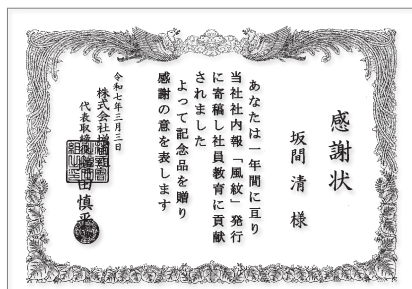 感謝状
坂間 清 様
あなたは一年間に亘り
当社社内報「風紋」発行
に寄稿し社員教育に貢献
されました
よって記念品を贈り
感謝の意を表します
令和七年三月三日
株式会社増
代表取締役 田慎平